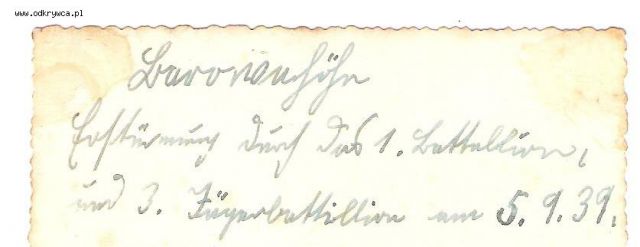 www.odkrywca.pl
Barownahöhe
Erstürmung durch das 1. Battallion,
und 3. Jägerbattillion am 5.9.39.